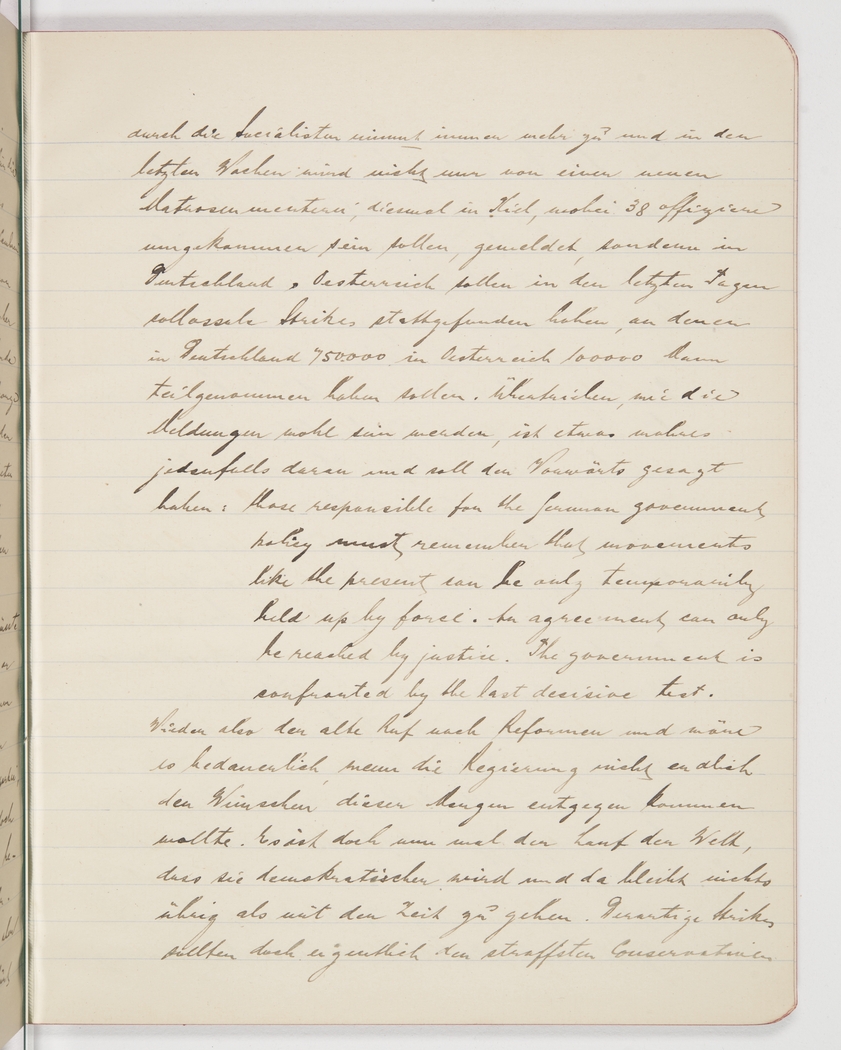 durch die Socialisten nimmt immer mehr zu und in den
letzten Wochen wird nicht nur von einer neuen
Matrosenmeuterei, diesmal in Kiel, wobei 38 offiziere
umgekommen sein sollen, gemeldet, sondern in
Deutschland & Oesterreich sollen in den letzten Tagen
collossale Strikes stattgefunden haben, an denen
in Deutschland 750.000 in Oesterreich 100000 Mann
teilgenommen haben sollen. Übertrieben, wie die
Meldungen wohl sein werden, ist etwas wahres
jedenfalls daran und soll der Vorwärts gesagt
haben: those responsible for the German government
policy must remember that movements
like the present can be only temporarily
held up by force. An agreement can only
be reached by justice. The government is
confronted by the last decisive test.
Wieder also der alte Ruf nach Reformen und wäre
es bedauerlich, wenn die Regierung nicht endlich
den Wünschen dieser Mengen entgegen kommen
wollte. Es ist doch nun mal der Lauf der Welt,
dass sie demokratischer wird und da bleibt nichts
übrig als mit der Zeit zu gehen. Derartige Strikes
sollten doch eigentlich den straffsten Conservativen